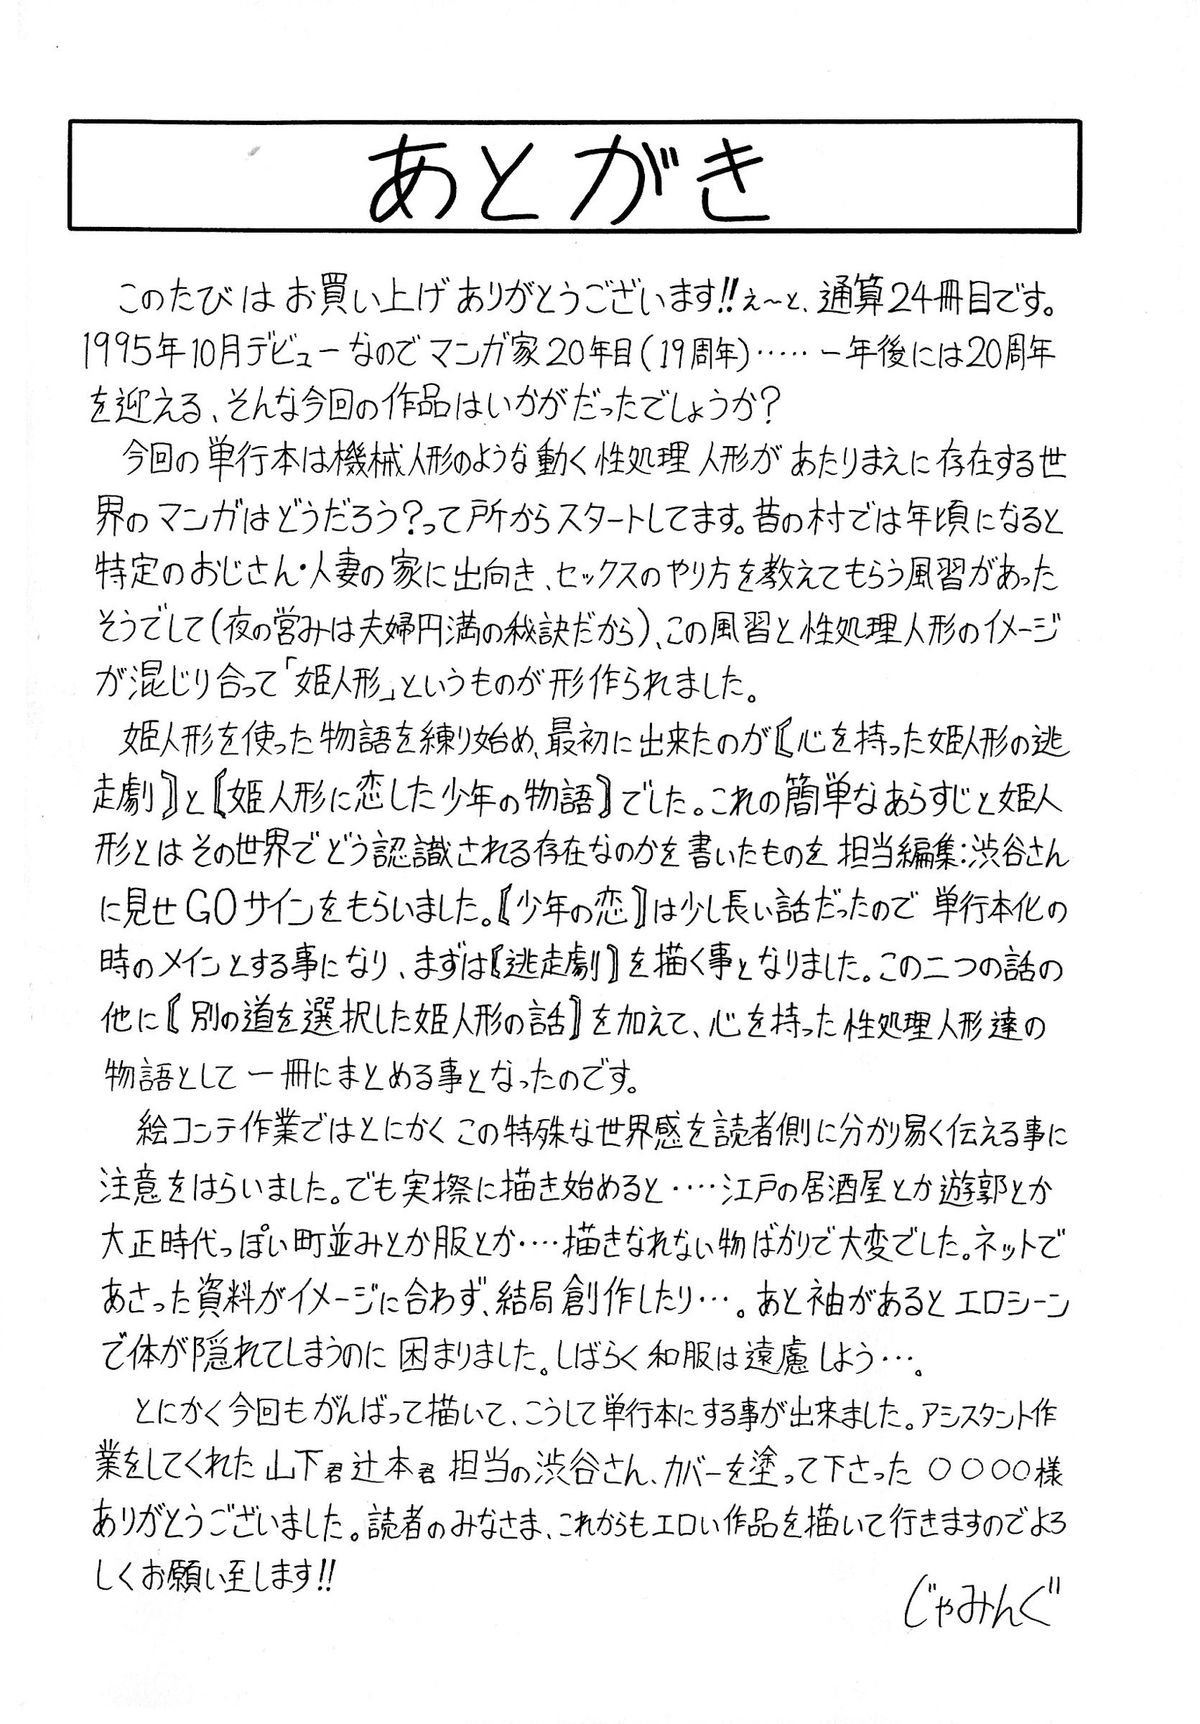 あとがき
このたびはお買い上げありがとうございます!!えーと、通算24冊目です。
1995年10月デビューなのでマンガ家20年目(19周年)‥‥‥一年後には20周年
を迎える、そんな今回の作品はいかがだったでしょうか?
今回の単行本は機械人形のような動く性処理人形があたりまえに存在する世
界のマンガはどうだろう?って所からスタートしてます。昔の村では年頃になると
特定のおじさん・人妻の家に出向き、セックスのやり方を教えてもらう風習があった
そうでして(夜の営みは夫婦円満の秘訣だから)、この風習と性処理人形のイメージ
が混じり合って「姫人形」というものが形作られました。
姫人形を使った物語を練り始め、最初に出来たのが〖心を持った姫人形の逃
走劇〗と〖姫人形に恋した少年の物語〗でした。これの簡単なあらすじと姫人
形とはその世界でどう認識される存在なのかを書いたものを担当編集:渋谷さん
に見せGOサインをもらいました。〖少年の恋〗は少し長い話だったので単行本化の
時のメインとする事になり、まずは〖逃走劇〗を描く事となりました。この二つの話の
他に〖別の道を選択した姫人形の話〗を加えて、心を持った性処理人形達の
物語として一冊にまとめる事となったのです。
絵コンテ作業ではとにかくこの特殊な世界感を読者側に分かり易く伝える事に
注意をはらいました。でも実際に描き始めると‥‥江戸の居酒屋とか遊郭とか
大正時代っぽい町並みとか服とか‥‥描きなれない物ばかりで大変でした。ネットで
あさった資料がイメージに合わず、結局創作したり…。あと袖があるとエロシーン
で体が隠れてしまうのに困りました。しばらく和服は遠慮しよう…。
とにかく今回もがんばって描いて、こうして単行本にする事が出来ました。アシスタント作
業をしてくれた山下君辻本君担当の渋谷さん、カバーを塗って下さった○○○○様
ありがとうございました。読者のみなさま、これからもエロい作品を描いて行きますのでよろ
しくお願い至します!!
じゃみんぐ